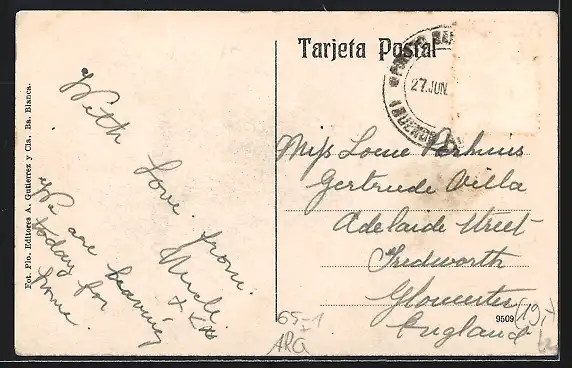 Tarjeta Postal
27 JUN.
With
love from.
Uncle
We are leaving
today for
home.
Miss Perkins
Gertrude Villa
Adelaide Street
Tredworth
Gloucester
England
Fot. Pio. Editores A. Gutierrez y Cia. Ba. Blanca.
9509
65-1
ARG